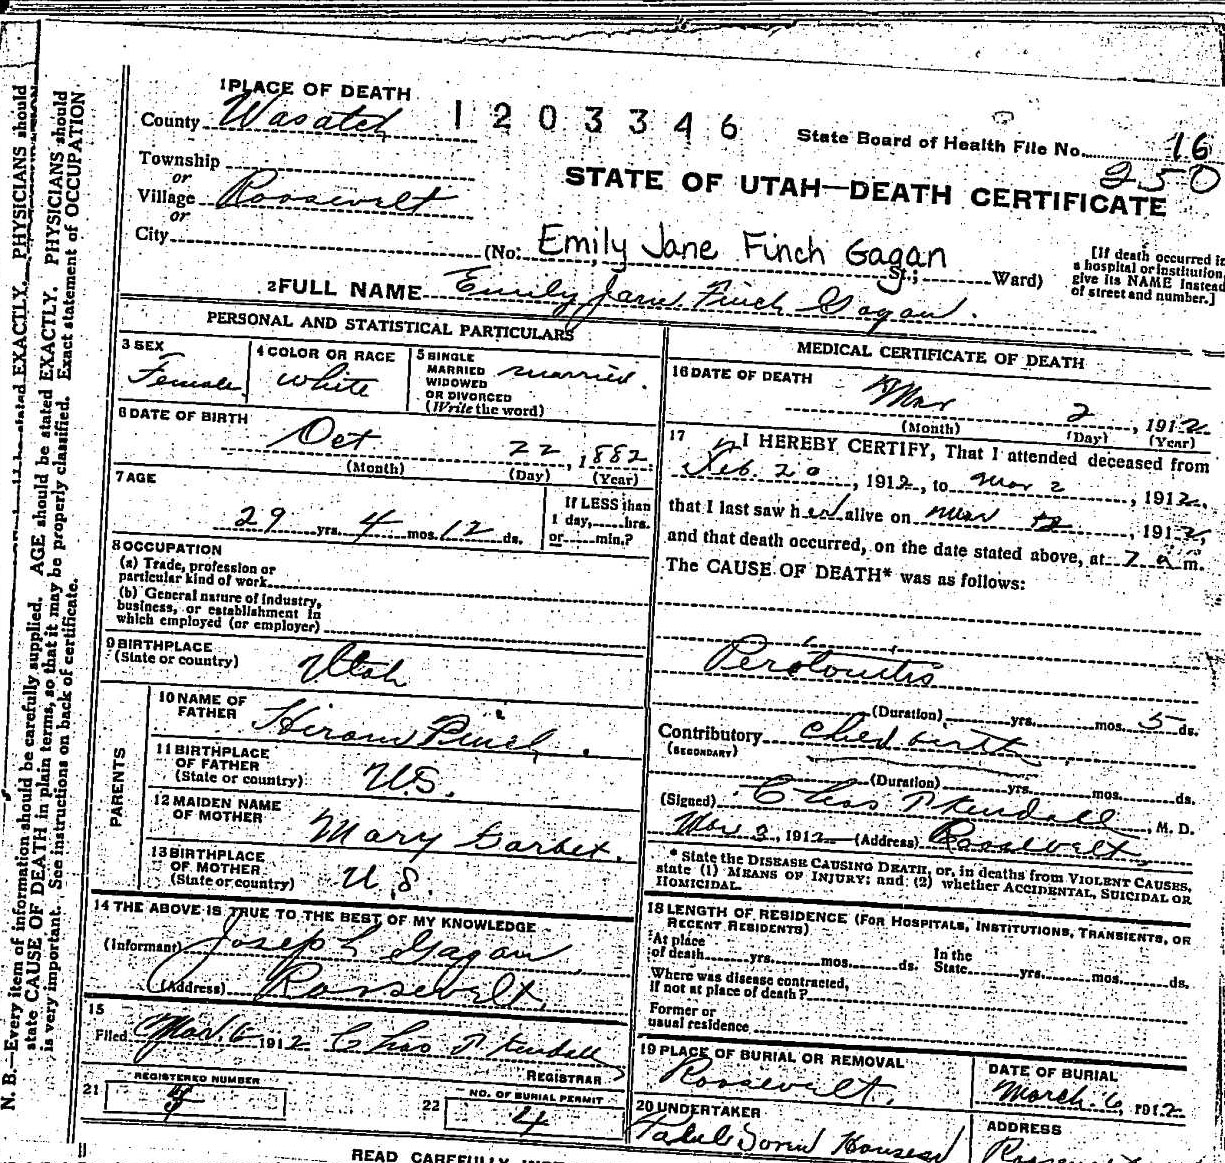 N. B.—Every item of information should be carefully supplied. AGE should be stated EXACTLY. PHYSICIANS should
state CAUSE OF DEATH in plain terms, so that it may be properly classified. Exact statement of OCCUPATION
is very important. See instructions on back of certificate.
1 PLACE OF DEATH
County Wasatch
1203346
State Board of Health File No. 16
250
Township
or
Village Roosevelt
or
City
STATE OF UTAH—DEATH CERTIFICATE
(No. Emily Jane Finch Gagan St.; Ward)
[If death occurred in
a hospital or institution,
give its NAME instead
of street and number.]
2 FULL NAME Emily Jane Finch Gagan.
PERSONAL AND STATISTICAL PARTICULARS
3 SEX
Female
4 COLOR OR RACE
White
5 SINGLE
MARRIED
WIDOWED
OR DIVORCED
(Write the word)
married.
6 DATE OF BIRTH
Oct 22, 1882
(Month) (Day) (Year)
7 AGE
29 yrs. 4 mos. 12 ds.
If LESS than
1 day, hrs.
or min.?
8 OCCUPATION
(a) Trade, profession or
particular kind of work
(b) General nature of industry,
business, or establishment in
which employed (or employer)
9 BIRTHPLACE
(State or country)
Utah
PARENTS
10 NAME OF
FATHER
Hiram Finch.
11 BIRTHPLACE
OF FATHER
(State or country)
U.S.
12 MAIDEN NAME
OF MOTHER
Mary
13 BIRTHPLACE
OF MOTHER
(State or country)
U.S.
14 THE ABOVE IS TRUE TO THE BEST OF MY KNOWLEDGE
(Informant) Joseph L Gagan
(Address) Roosevelt.
15
Filed Mar. 6 1912 Chas P Kendall
REGISTRAR
21 REGISTERED NUMBER
22 NO. OF BURIAL PERMIT
4
MEDICAL CERTIFICATE OF DEATH
16 DATE OF DEATH
Mar 2, 1912
(Month) (Day) (Year)
17 I HEREBY CERTIFY, That I attended deceased from
Feb. 20, 1912, to Mar 2, 1912,
that I last saw her alive on Mar 2, 1912,
and that death occurred, on the date stated above, at 7 a m.
The CAUSE OF DEATH* was as follows:
Peritonitis
(Duration) yrs. mos. 5 ds.
Contributory
(SECONDARY)
Child birth
(Duration) yrs. mos. ds.
(Signed) Chas P Kendall, M. D.
Mar 2, 1912 (Address) Roosevelt
* State the DISEASE CAUSING DEATH, or, in deaths from VIOLENT CAUSES,
state (1) MEANS OF INJURY; and (2) whether ACCIDENTAL, SUICIDAL OR
HOMICIDAL.
18 LENGTH OF RESIDENCE (FOR HOSPITALS, INSTITUTIONS, TRANSIENTS, OR
RECENT RESIDENTS)
At place
of death yrs. mos. ds.
In the
State yrs. mos. ds.
Where was disease contracted,
if not at place of death?
Former or
usual residence
19 PLACE OF BURIAL OR REMOVAL
Roosevelt.
DATE OF BURIAL
March 6, 1912
20 UNDERTAKER
ADDRESS
READ CAREFULLY